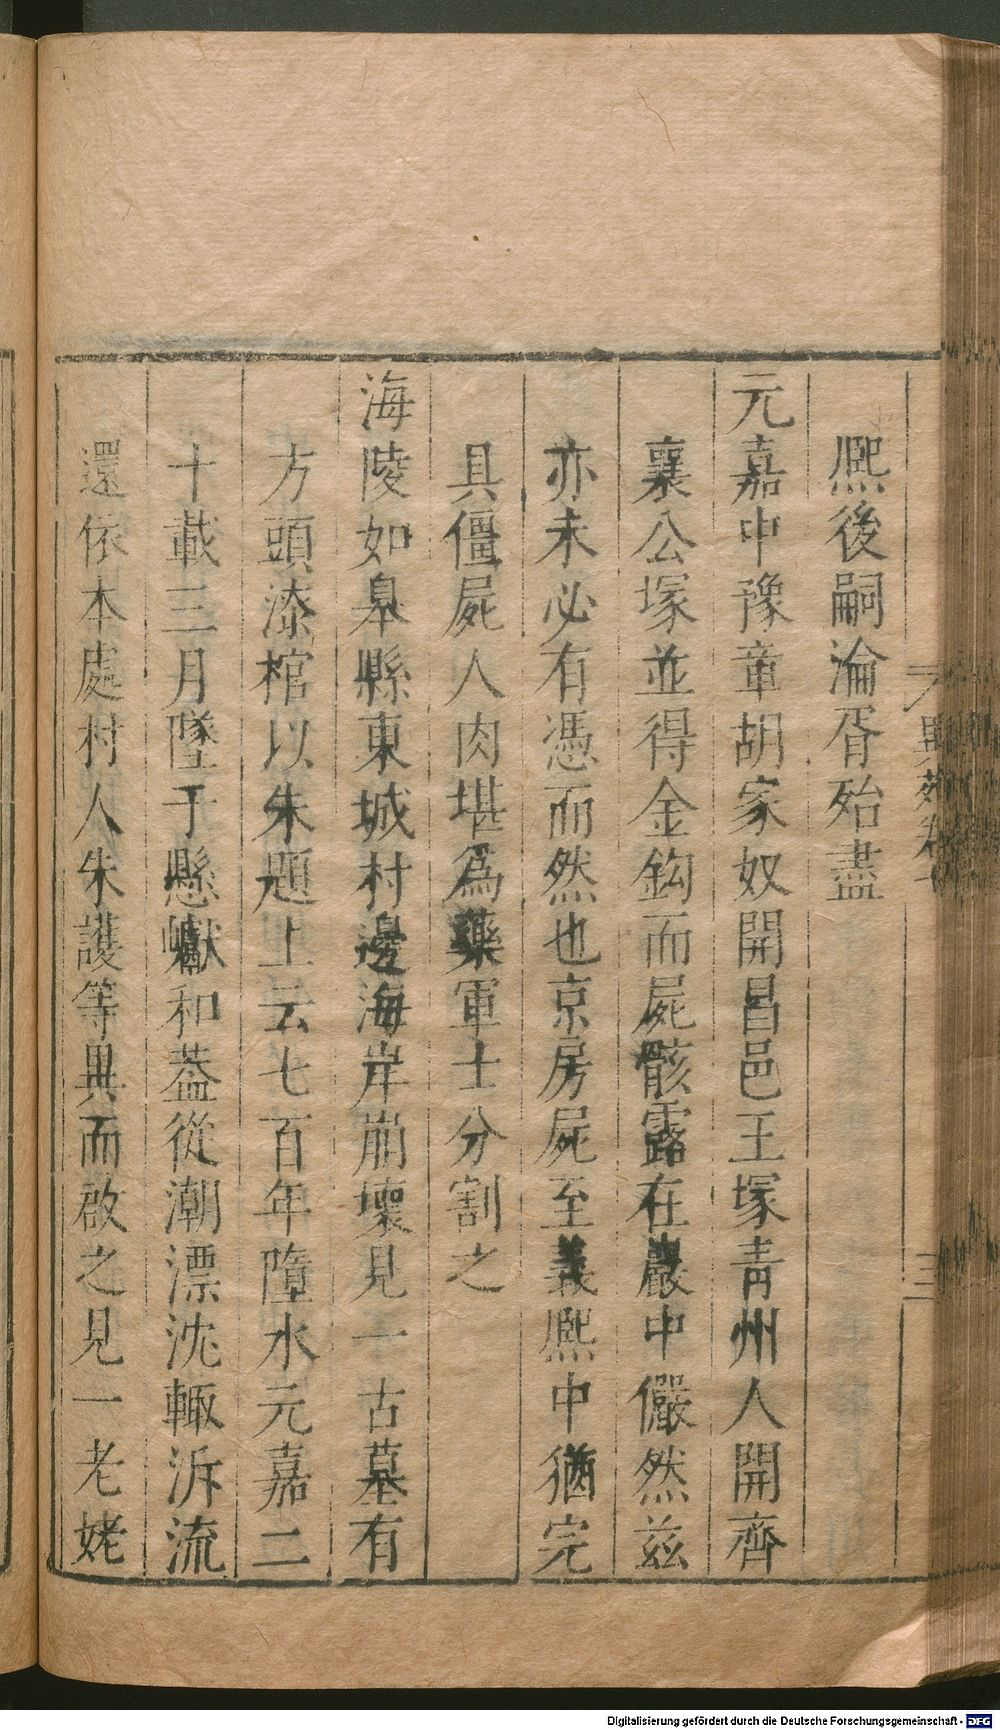 熈後嗣淪胥殆盡
元嘉中豫章胡家奴開昌邑王塚青州人開齊
襄公塚並得金鈎而屍骸露在巖中儼然兹
亦未必有憑而然也京房屍至義熈中猶完
具僵屍人肉堪爲藥軍士分割之
海陵如臯縣東城村邊海岸崩壞見一古墓有
方頭漆棺以朱題上云七百年墮水元嘉二
十載三月墜于懸巘和蓋從潮漂沈輙泝流
還依本處村人朱護等異而啟之見一老姥
異苑卷七
三
Digitalisierung gefördert durch die Deutsche Forschungsgemeinschaft - DFG